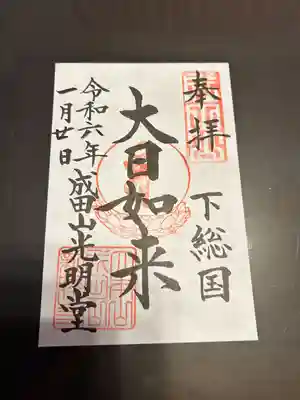 奉拝
下総国
大日如来
成田山光明堂
令和六年
一月廿日